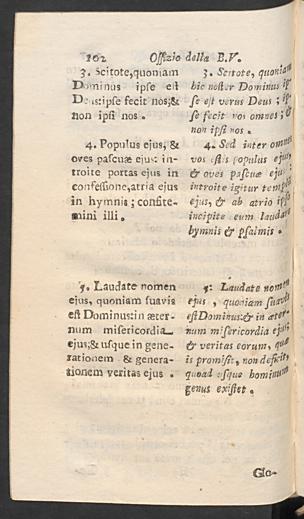 102 Offizio della B.V.
3. Scitote, quoniam
Dominus ipse est
Deus: ipse fecit nos; &
non ipsi nos.
4. Populus ejus, &
oves pascuæ ejus: in-
troite portas ejus in
confessione, atria ejus
in hymnis; confite-
mini illi.
5. Laudate nomen
ejus, quoniam suavis
est Dominus: in æter-
num misericordia
ejus; & usque in gene-
rationem & genera-
tionem veritas ejus.
3. Scitote, quoniam
hic noster Dominus ip-
se est verus Deus; ip-
se fecit vos omnes; &
non ipsi nos.
4. Sed inter omnes
vos estis populus ejus,
& oves pascuæ ejus:
introite igitur templa
ejus, & ab atrio ipso
incipite eum laudare
hymnis & psalmis.
5: Laudate nomen
ejus, quoniam suavis
est Dominus: & in æter-
num misericordia ejus;
& veritas eorum, quæ
is promisit, non deficit,
quoad usque hominum
genus existet.
Glo-